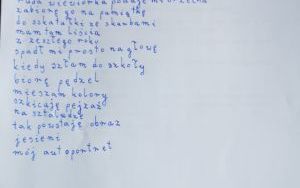 ruda wiewiórka podaje mi orzecha
zabiorę go na pamiątkę
do szkatułki ze skarbami
mam tam liścia
z zeszłego roku
spadł mi prosto na głowę
kiedy szłam do szkoły
biorę pędzel
mieszam kolory
szkicuję pejzaż
na sztaludze
tak powstaje obraz
jesieni
mój autoportret